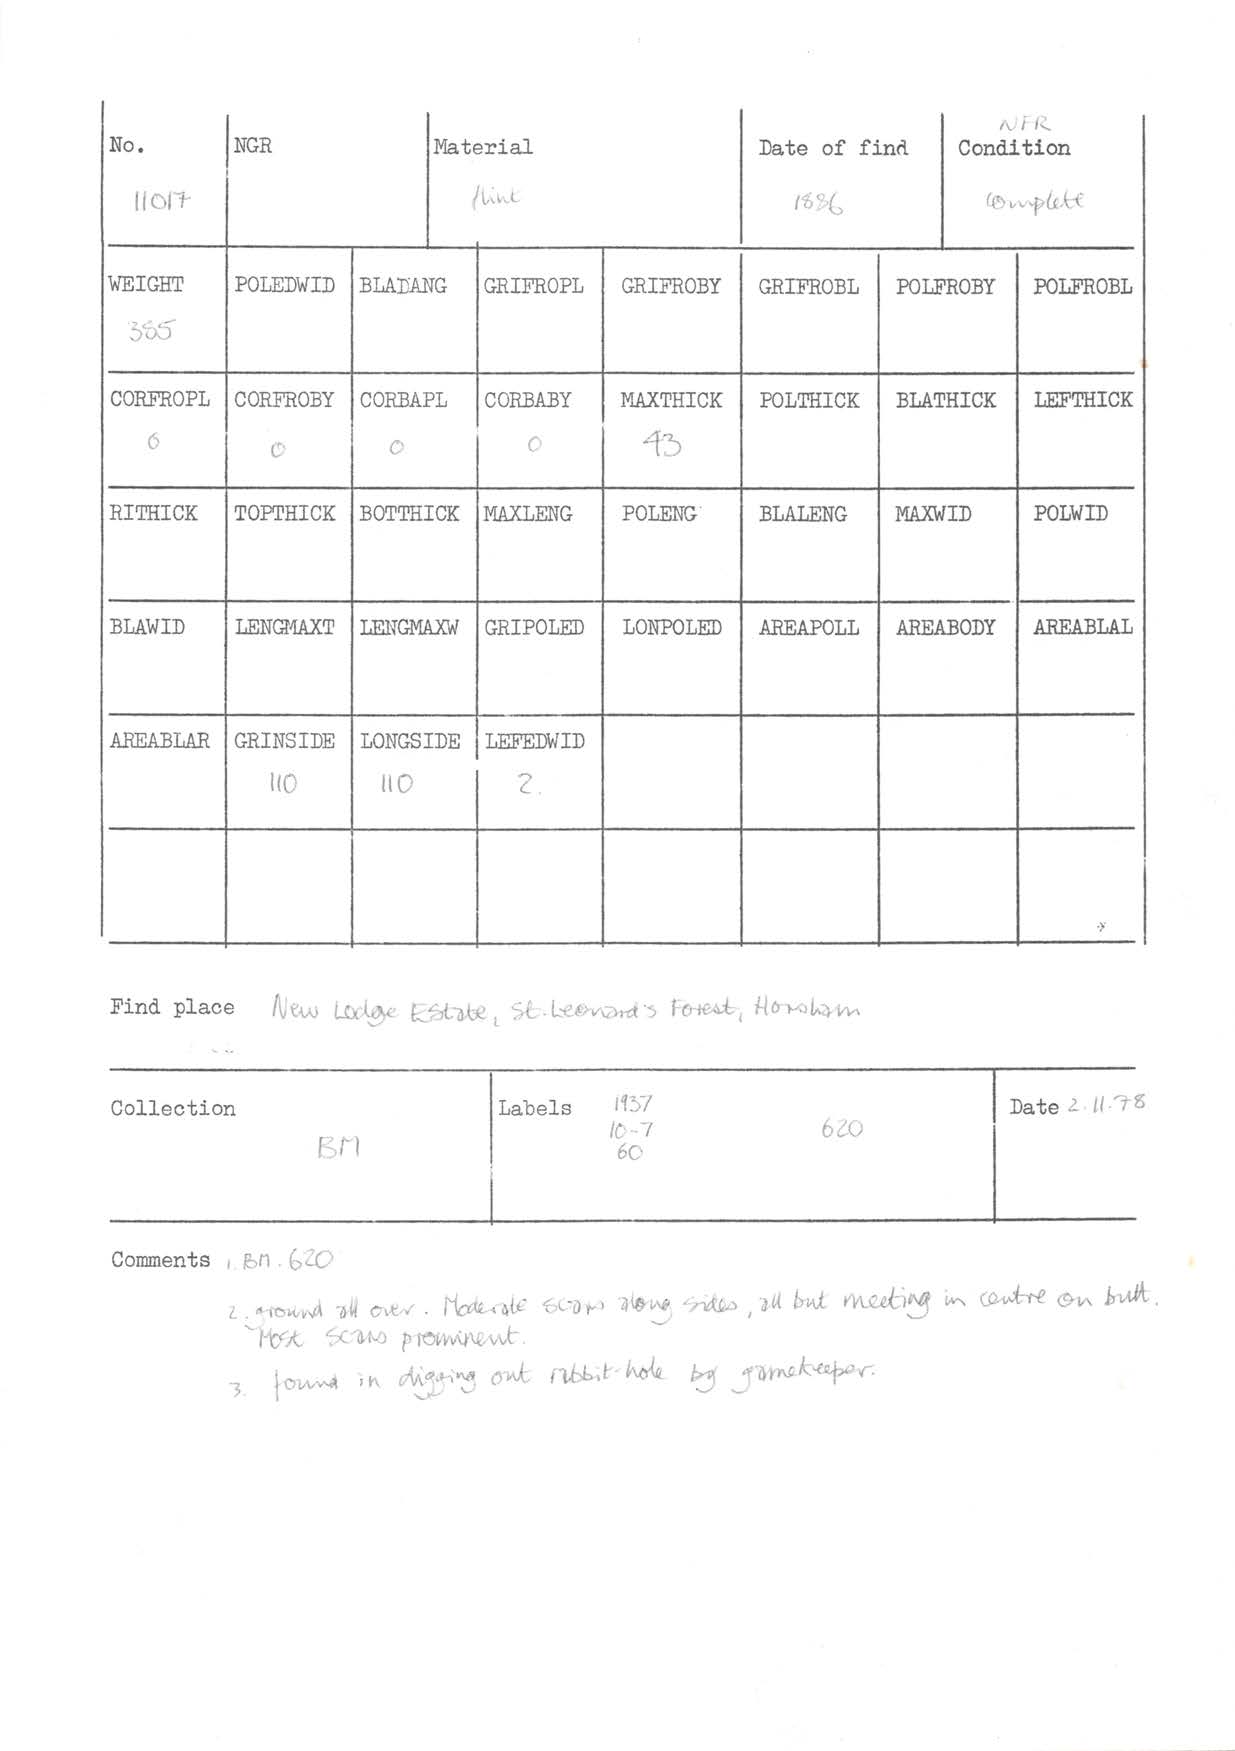 NFR
No. NGR Material Date of find Condition
11017 flint 1886 complete
WEIGHT POLEDWID BLADANG GRIFROPL GRIFROBY GRIFROBL POLFROBY POLFROBL
385
CORFROPL CORFROBY CORBAPL CORBABY MAXTHICK POLTHICK BLATHICK LEFTHICK
0 0 0 0 43
RITHICK TOPTHICK BOTTHICK MAXLENG POLENG BLALENG MAXWID POLWID
BLAWID LENGMAXT LENGMAXW GRIPOLED LONPOLED AREAPOLL AREABODY AREABLAL
AREABLAR GRINSIDE LONGSIDE LEFEDWID
110 110 2.
Find place New Lodge Estate, St. Leonard's Forest, Horsham
Collection Labels 1937 Date 2.11.78
BM 10-7 620
60
Comments 1. BM. 620
2. ground all over. Moderate scars along sides, all but meeting in centre on butt.
Most scars prominent.
3. found in digging out rabbit-hole by gamekeeper.